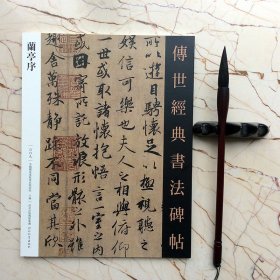 傳世經典書法碑帖
蘭亭序
所以遊目騁懷足以極視聽之
娛信可樂也夫人之相與俯仰
一世或取諸懷抱悟言一室之內
或因寄所託放浪形骸之外雖
趣舍萬殊靜躁不同當其欣